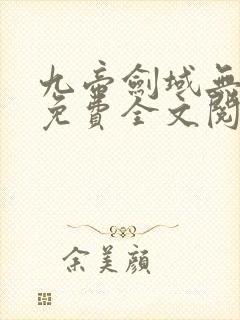 九帝劍域無
免費全文閱
余美顏